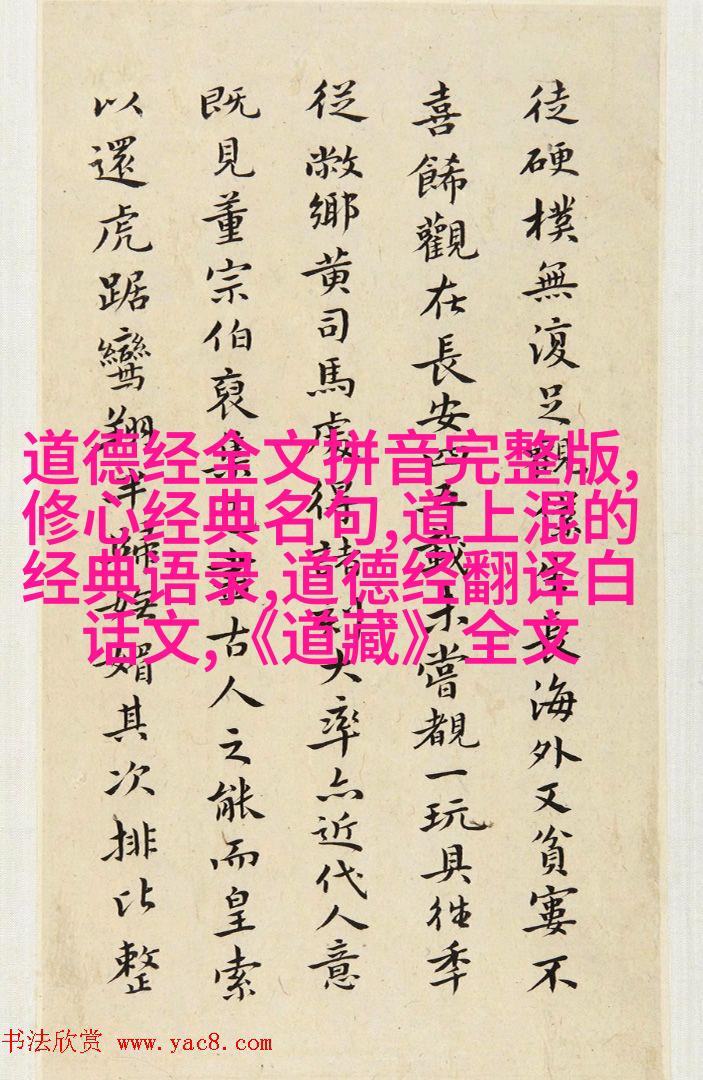 徒硬樸無復足觀僕生長海外又貧寠不
喜餙觀在長安四五載未嘗覩一玩具往季
從敝鄉黄司馬處得諸大率亦近代人意
既見董宗伯裒集古人之能而皇索
以還虎踞鸞翔其次排比整
道德经全文拼音完整版,
修心经典名句,道上混的
经典语录,道德经翻译白
话文,《道藏》全文
书法欣赏 www.yac8.com